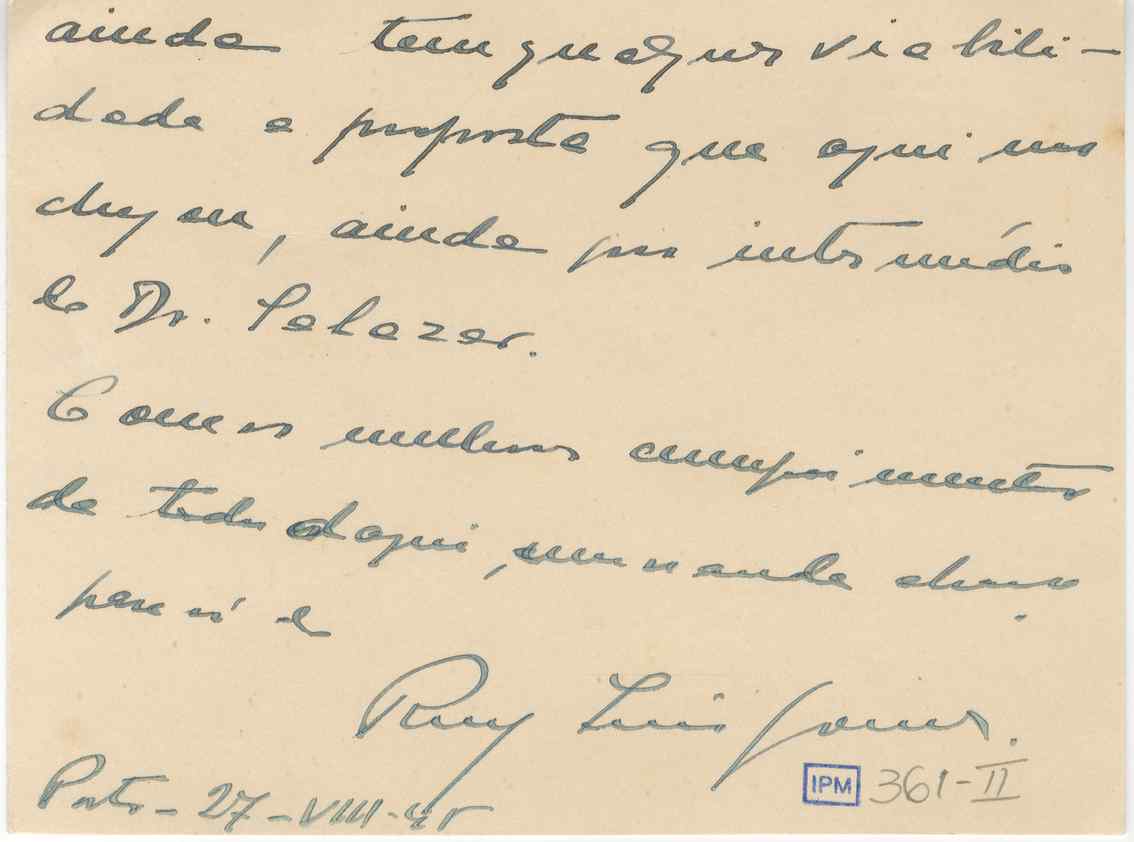 ainda tem qualquer viabili-
dade a proposta que aqui nos
chegou, ainda por intermédio
do Dr. Salazar.
Com os melhores cumprimentos
de todos daqui, um grande abraço
para si do
Ruy Luis Gomes.
Porto - 27 - VIII - 45
IPM 361-II